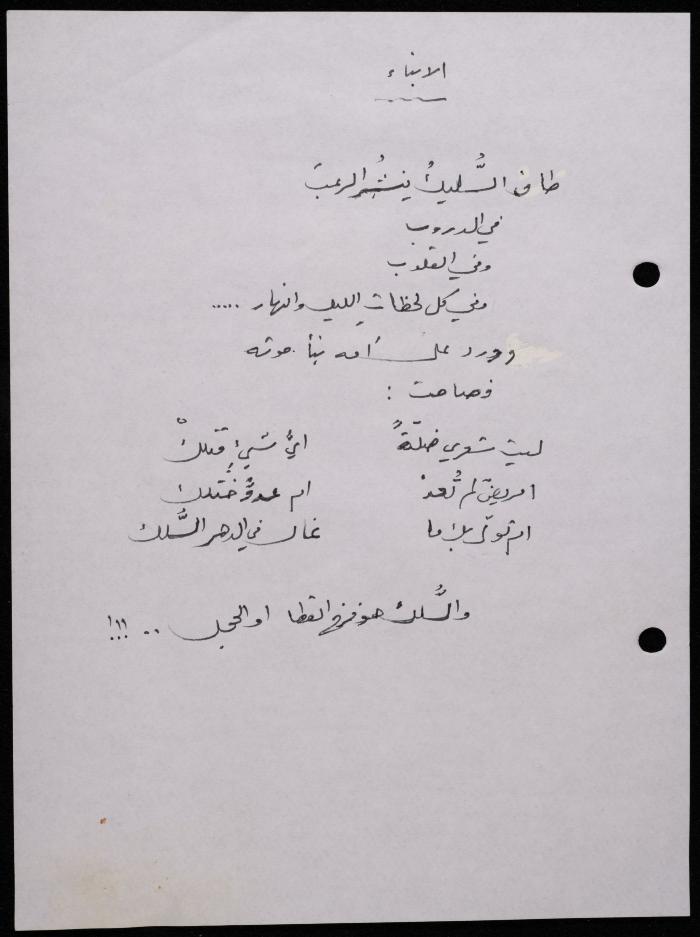 الابناء
طاف السُّليكُ ينشُر الرعبَ
في الدروب
وفي القلوب
وفي كل لحظات الليل والنهار .....
وورد على أمه نبأ موته
فصاحت :
ليت شعري ضلّةً ايُّ شيءٍ قتلكْ
امريضٌ لم تُعدْ ام عدوٌّ ختلك
ام تولّى بك ما غال في الدهر السُّلك
والسُّلك هو فرخ القطا او الحجل .. !!!